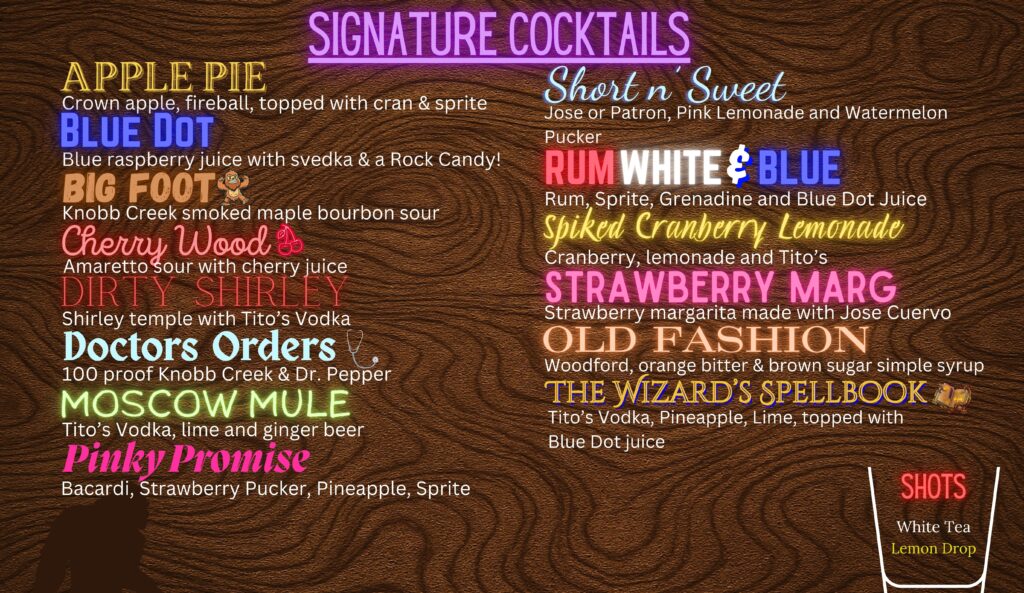 SIGNATURE COCKTAILS
APPLE PIE
Crown apple, fireball, topped with cran & sprite
BLUE DOT
Blue raspberry juice with svedka & a Rock Candy!
BIG FOOT
Knobb Creek smoked maple bourbon sour
Cherry Wood
Amaretto sour with cherry juice
DIRTY SHIRLEY
Shirley temple with Tito's Vodka
Doctors Orders
100 proof Knobb Creek & Dr. Pepper
MOSCOW MULE
Tito's Vodka, lime and ginger beer
Pinky Promise
Bacardi, Strawberry Pucker, Pineapple, Sprite
Short n' Sweet
Jose or Patron, Pink Lemonade and Watermelon
Pucker
RUM WHITE & BLUE
Rum, Sprite, Grenadine and Blue Dot Juice
Spiked Cranberry Lemonade
Cranberry, lemonade and Tito's
STRAWBERRY MARG
Strawberry margarita made with Jose Cuervo
OLD FASHION
Woodford, orange bitter & brown sugar simple syrup
THE WIZARD'S SPELLBOOK
Tito's Vodka, Pineapple, Lime, topped with
Blue Dot juice
SHOTS
White Tea
Lemon Drop